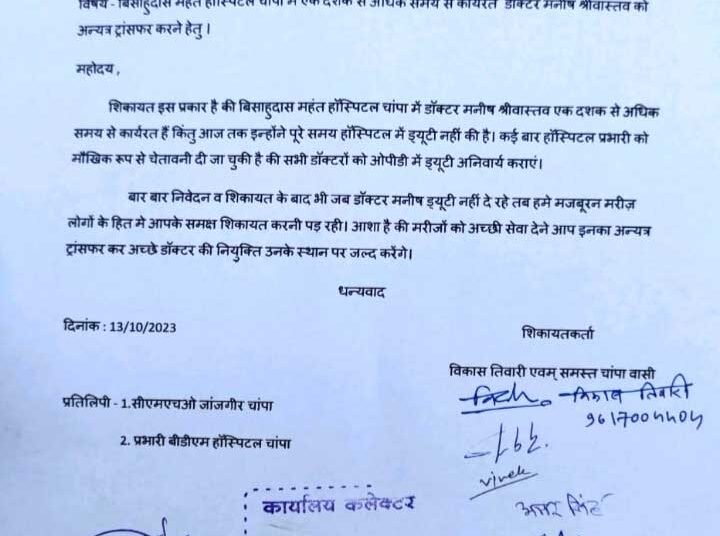 विषय - बिसाहुदास महंत हॉस्पिटल चांपा में एक दशक से अधिक समय से कार्यरत डॉक्टर मनीष श्रीवास्तव को
अन्यत्र ट्रांसफर करने हेतु ।
महोदय ,
शिकायत इस प्रकार है की बिसाहुदास महंत हॉस्पिटल चांपा में डॉक्टर मनीष श्रीवास्तव एक दशक से अधिक
समय से कार्यरत हैं किंतु आज तक इन्होंने पूरे समय हॉस्पिटल में ड्यूटी नहीं की है। कई बार हॉस्पिटल प्रभारी को
मौखिक रूप से चेतावनी दी जा चुकी है की सभी डॉक्टरों को ओपीडी में ड्यूटी अनिवार्य कराएं।
बार बार निवेदन व शिकायत के बाद भी जब डॉक्टर मनीष ड्यूटी नहीं दे रहे तब हमे मजबूरन मरीज़
लोगों के हित मे आपके समक्ष शिकायत करनी पड़ रही। आशा है की मरीजों को अच्छी सेवा देने आप इनका अन्यत्र
ट्रांसफर कर अच्छे डॉक्टर की नियुक्ति उनके स्थान पर जल्द करेंगे।
धन्यवाद
दिनांक : 13/10/2023
शिकायतकर्ता
विकास तिवारी एवम् समस्त चांपा वासी
विकास तिवारी
प्रतिलिपी - 1.सीएमएचओ जांजगीर चांपा
2. प्रभारी बीडीएम हॉस्पिटल चांपा
vivek
कार्यालय कलेक्टर